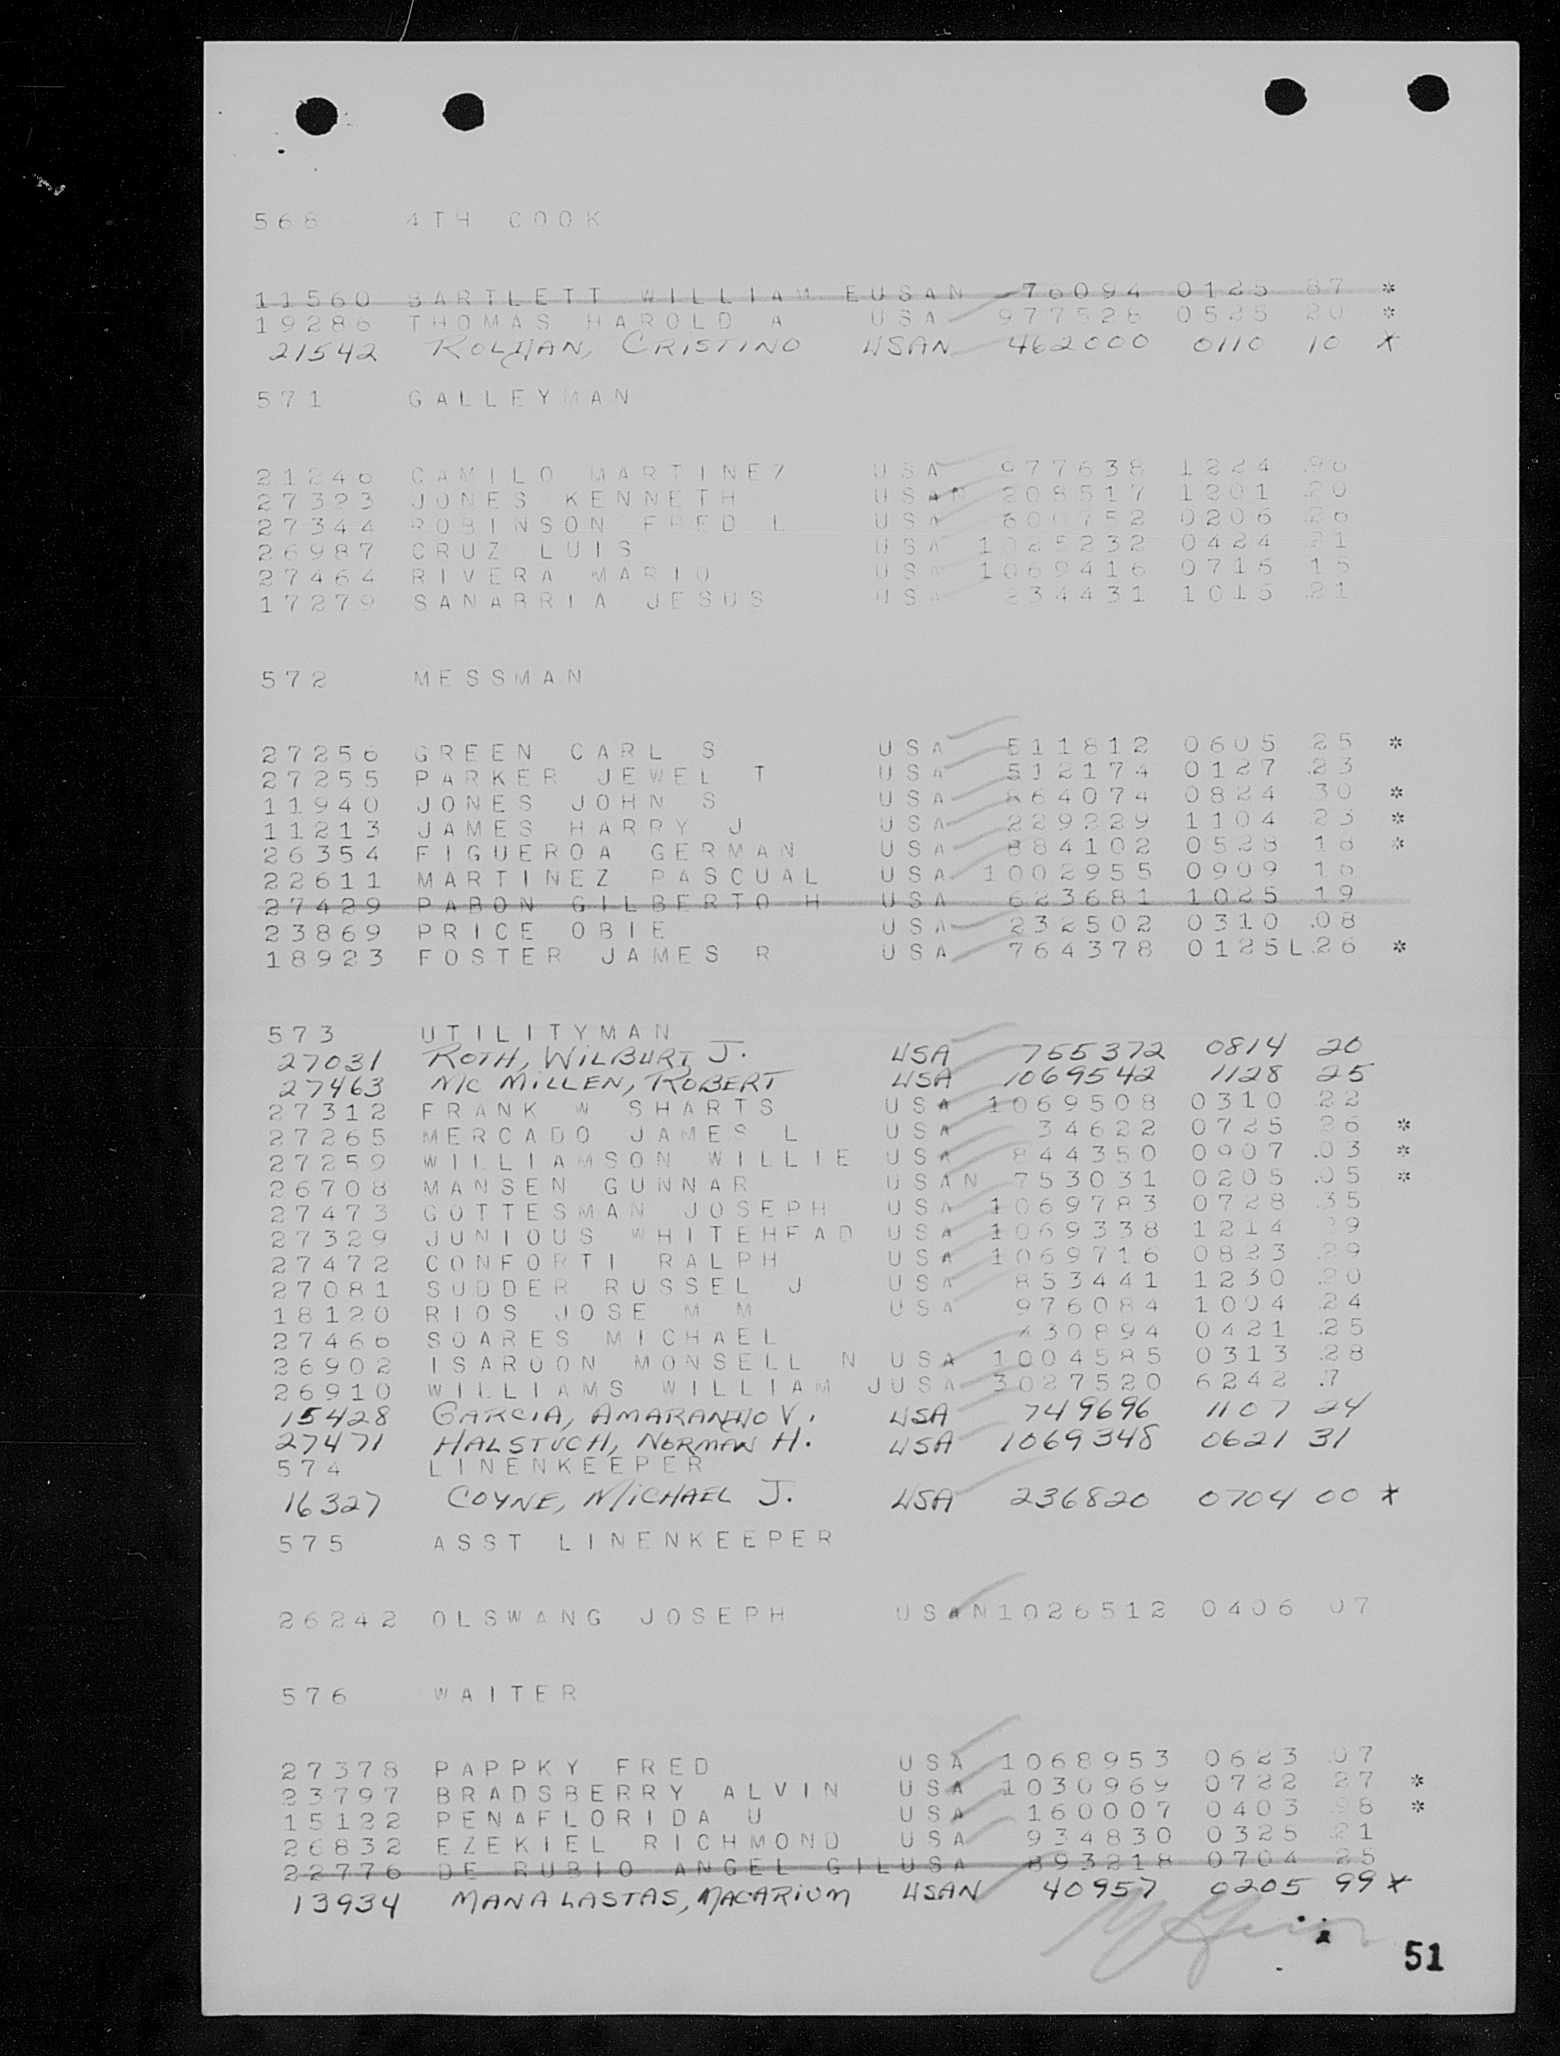 568 4TH COOK
11560 BARTLETT WILLIAM E USAN 76094 0125 87 *
19286 THOMAS HAROLD A USA 977528 0525 20 *
21542 CRISTINO USAN 462000 0110 10 X
571 GALLEYMAN
21246 CAMILO MARTINEZ USA 977638 1224 .96
27323 JONES KENNETH USAN 208517 1201 .20
27344 ROBINSON FRED L USA 0206 .26
26987 CRUZ LUIS USA 1025232 0424
27464 RIVERA MARIO USA 1069416 0715 15
17279 SANABRIA JESUS USA 234431 1015 .21
572 MESSMAN
27256 GREEN CARL S USA 511812 0605 .25 *
27255 PARKER JEWEL T USA 512174 0127 .23
11940 JONES JOHN S USA 864074 0824 30 *
11213 JAMES HARRY J USA 229229 1104 .23 *
26354 FIGUEROA GERMAN USA 884102 0528 18 *
22611 MARTINEZ PASCUAL USA 1002955 0909 16
27429 PABON GILBERTO H USA 623681 1025 19
23869 PRICE OBIE USA 232502 0310 .08
18923 FOSTER JAMES R USA 764378 0125L.26 *
573 UTILITYMAN
27031 ROTH, WILBURT J. USA 755372 0814 20
27463 MC MILLEN, ROBERT USA 1069542 1128 25
27312 FRANK W SHARTS USA 1069508 0310 .22
27265 MERCADO JAMES L USA 34622 0725 26 *
27259 WILLIAMSON WILLIE USA 844350 0907 .03 *
26708 MANSEN GUNNAR USAN 753031 0205 .05 *
27473 GOTTESMAN JOSEPH USA 1069783 0728 .35
27329 JUNIOUS WHITEHEAD USA 1069338 1214 29
27472 CONFORTI RALPH USA 1069716 0823 .29
27081 SUDDER RUSSEL J USA 853441 1230 .20
18120 RIOS JOSE M M USA 976084 1004 .24
27466 SOARES MICHAEL 430894 0421 .25
26902 ISAROON MONSELL N USA 1004585 0313 .28
26910 WILLIAMS WILLIAM J USA 3027520 6242 .7
15428 GARCIA, AMARANTHO V. USA 749696 1107 24
27471 HALSTUCH, NORMAN H. USA 1069348 0621 31
574 LINENKEEPER
16327 COYNE, MICHAEL J. USA 236820 0704 00 *
575 ASST LINENKEEPER
26242 OLSWANG JOSEPH USAN 1026512 0406 07
576 WAITER
27378 PAPPKY FRED USA 1068953 0623 07
23797 BRADSBERRY ALVIN USA 1030969 0722 27 *
15122 PENAFLORIDA U USA 160007 0403 98 *
26832 EZEKIEL RICHMOND USA 934830 0325 21
22776 DE RUBIO ANGEL GIL USA 893218 0704 25
13934 MANALASTAS, MACARIUM USAN 40957 0205 99 *
51